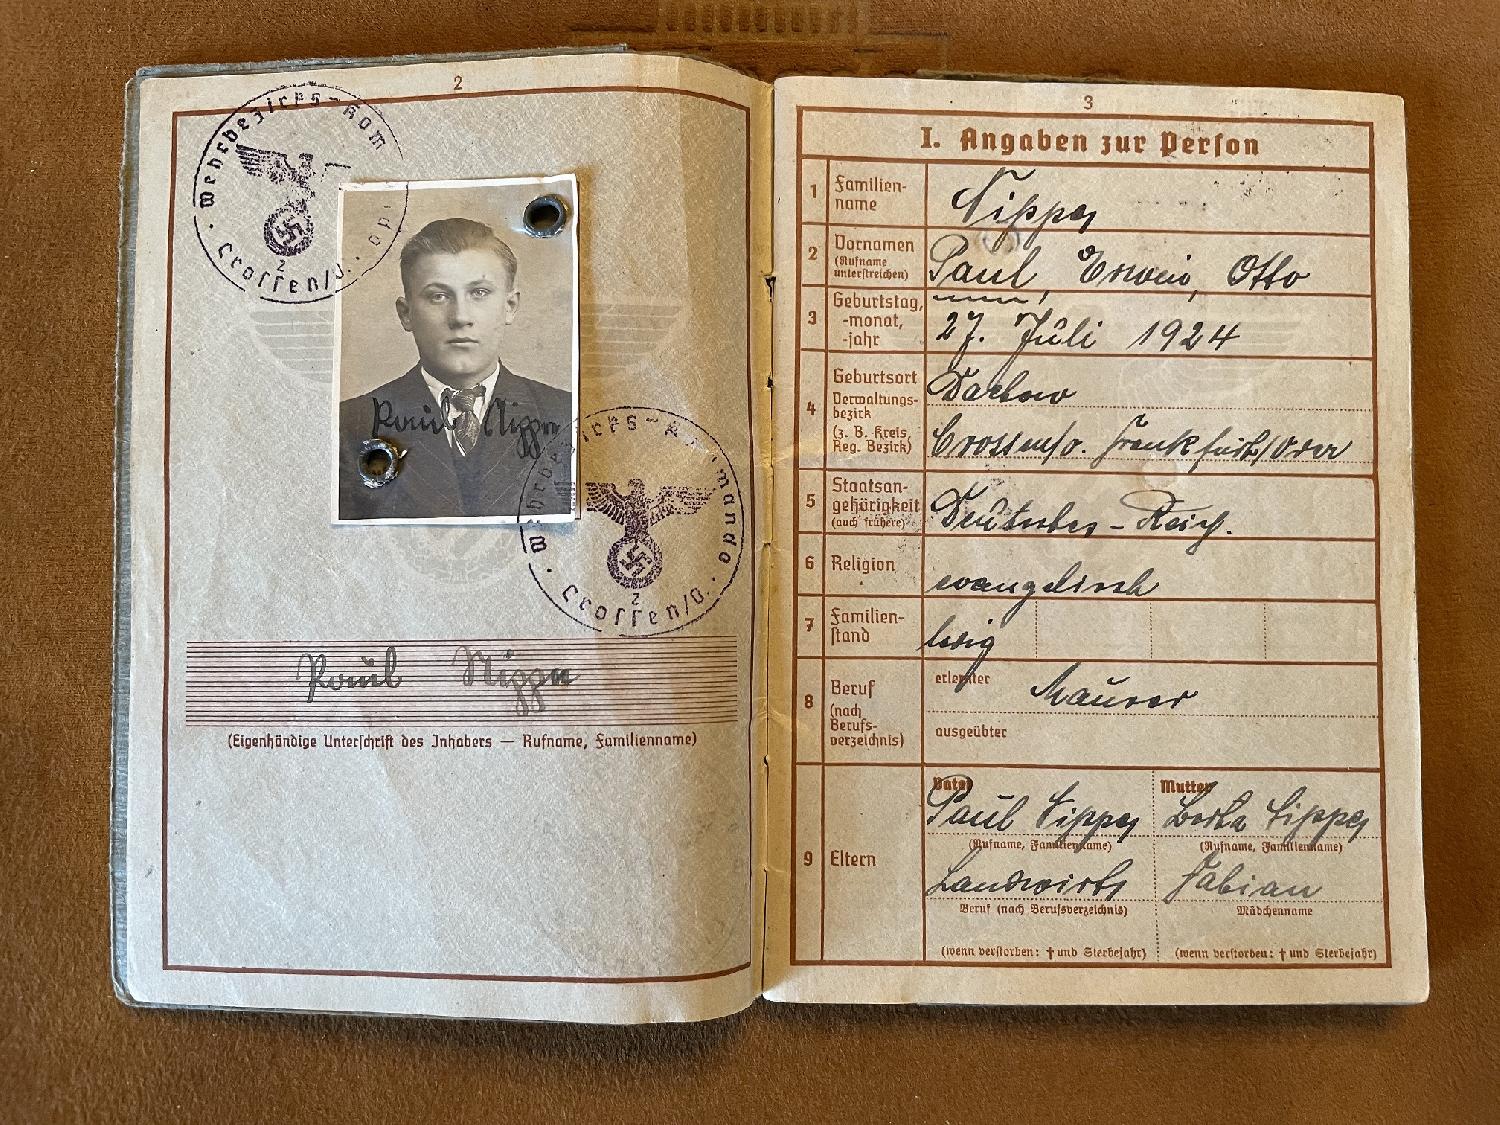 2
Wehrbezirks-Kom
Crossen/O.
2
Paul
Wehrbezirks-Kommando
Crossen/O.
2
Paul
(Eigenhändige Unterschrift des Inhabers — Rufname, Familienname)
3
I. Angaben zur Person
1 Familien-
name
2 Vornamen
(Rufname
unterstreichen)
Paul, Erwin, Otto
3 Geburtstag,
-monat,
-jahr
27. Juli 1924
4 Geburtsort
Verwaltungs-
bezirk
(z. B. Kreis,
Reg. Bezirk)
Crossen/O. Frankfurt/Oder
5 Staatsan-
gehörigkeit
(auch frühere)
Deutsches-Reich.
6 Religion
evangelisch
7 Familien-
stand
ledig
8 Beruf
(nach
Berufs-
verzeichnis)
erlernter
Maurer
ausgeübter
9 Eltern
Vater
Paul
(Rufname, Familienname)
Landwirt
Beruf (nach Berufsverzeichnis)
(wenn verstorben: † und Sterbejahr)
Mutter
Berta
(Rufname, Familienname)
Fabian
Mädchenname
(wenn verstorben: † und Sterbejahr)